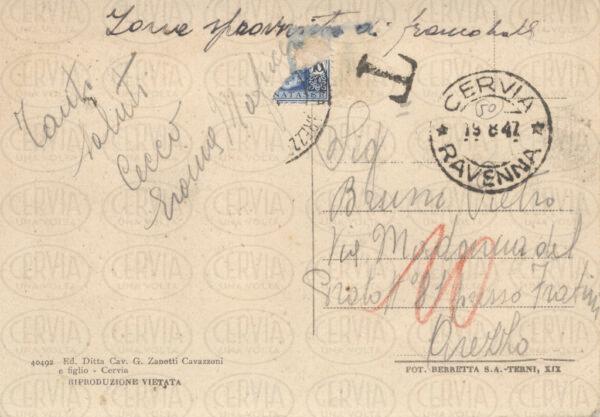 Zona sprovvista di francobolli
Tanti
saluti
Cecco
T
CERVIA
50
19 8 47
RAVENNA
Sig
Bruni Pietro
Via Madonna del
Prato presso Fratini
Arezzo
10
40492 Ed. Ditta Cav. G. Zanotti Cavazzoni
e figlio - Cervia
RIPRODUZIONE VIETATA
FOT. BERRETTA S.A.-TERNI, XIX
CERVIA
UNA VOLTA